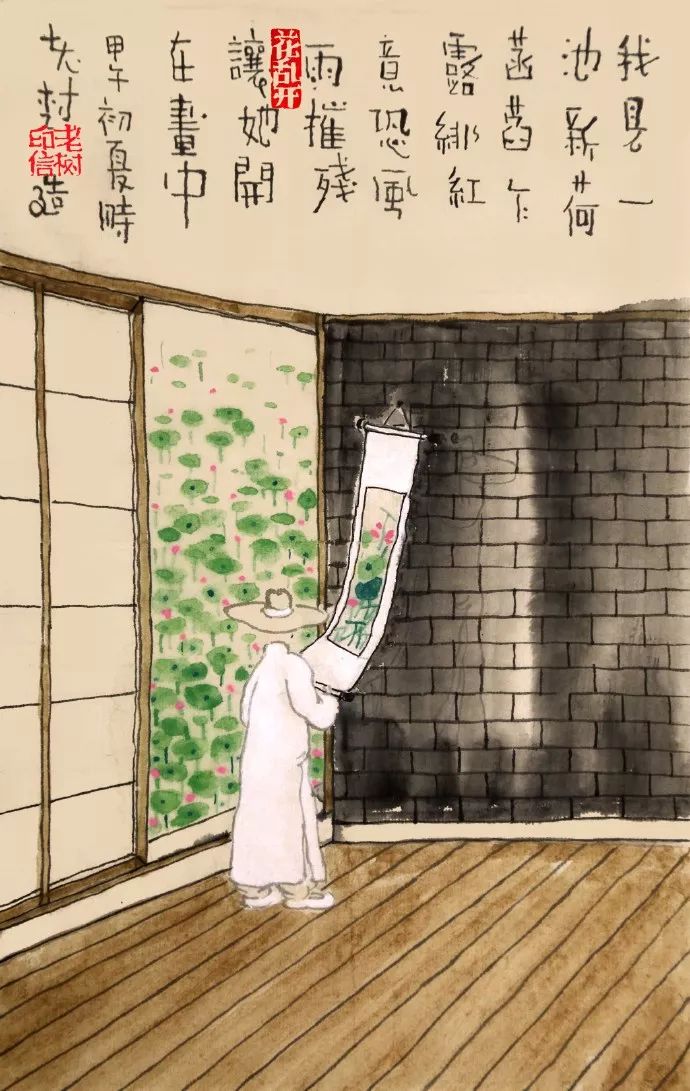 我見一
池新荷
菡萏乍
露緋紅
意恐風
雨摧残
讓她開
在畫中
甲午初夏時
老树造
花乱开
老树印信